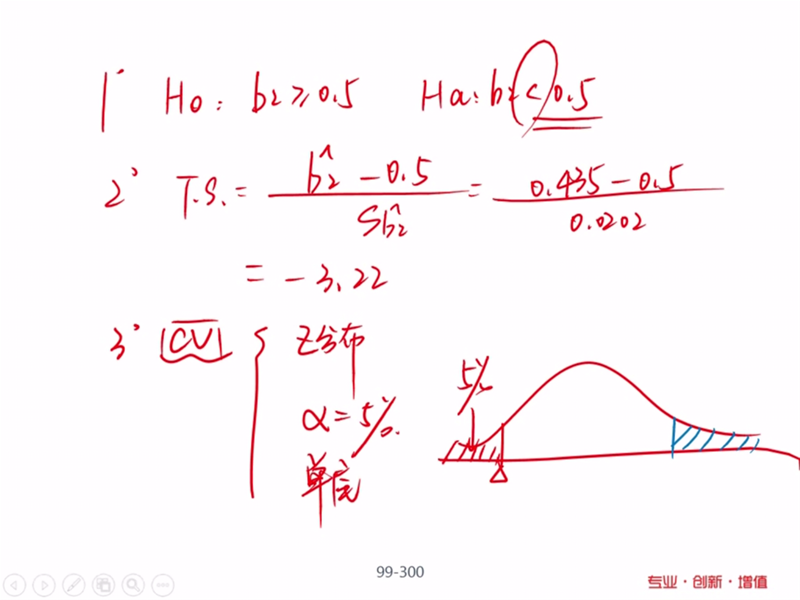 1° H0: b2 ≥ 0.5 Ha: b2 < 0.5
2° T.S. = (b̂2 − 0.5) / Sb̂2 = (0.435 − 0.5) / 0.0202
= −3.22
3° |CV| { Z分布
α = 5%
单尾
5%
99-300
专业·创新·增值